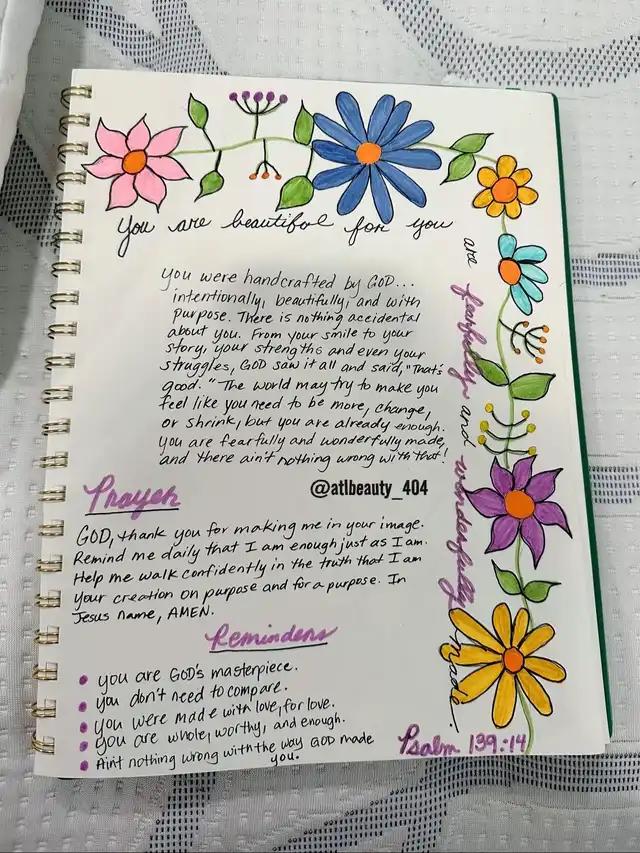 You are beautiful for you
are fearfully and wonderfully made.
You were handcrafted by GOD...
intentionally, beautifully, and with
purpose. There is nothing accidental
about you. From your smile to your
story, your strengths and even your
struggles, GOD saw it all and said, "That's
good." The world may try to make you
feel like you need to be more, change,
or shrink, but you are already enough.
You are fearfully and wonderfully made,
and there ain't nothing wrong with that!
@atlbeauty_404
Prayer
GOD, thank you for making me in your image.
Remind me daily that I am enough just as I am.
Help me walk confidently in the truth that I am
your creation on purpose and for a purpose. In
Jesus name, AMEN.
Reminders
• You are GOD's masterpiece.
• You don't need to compare.
• You were made with love, for love.
• You are whole, worthy, and enough.
• Ain't nothing wrong with the way GOD made
you.
Psalm 139:14